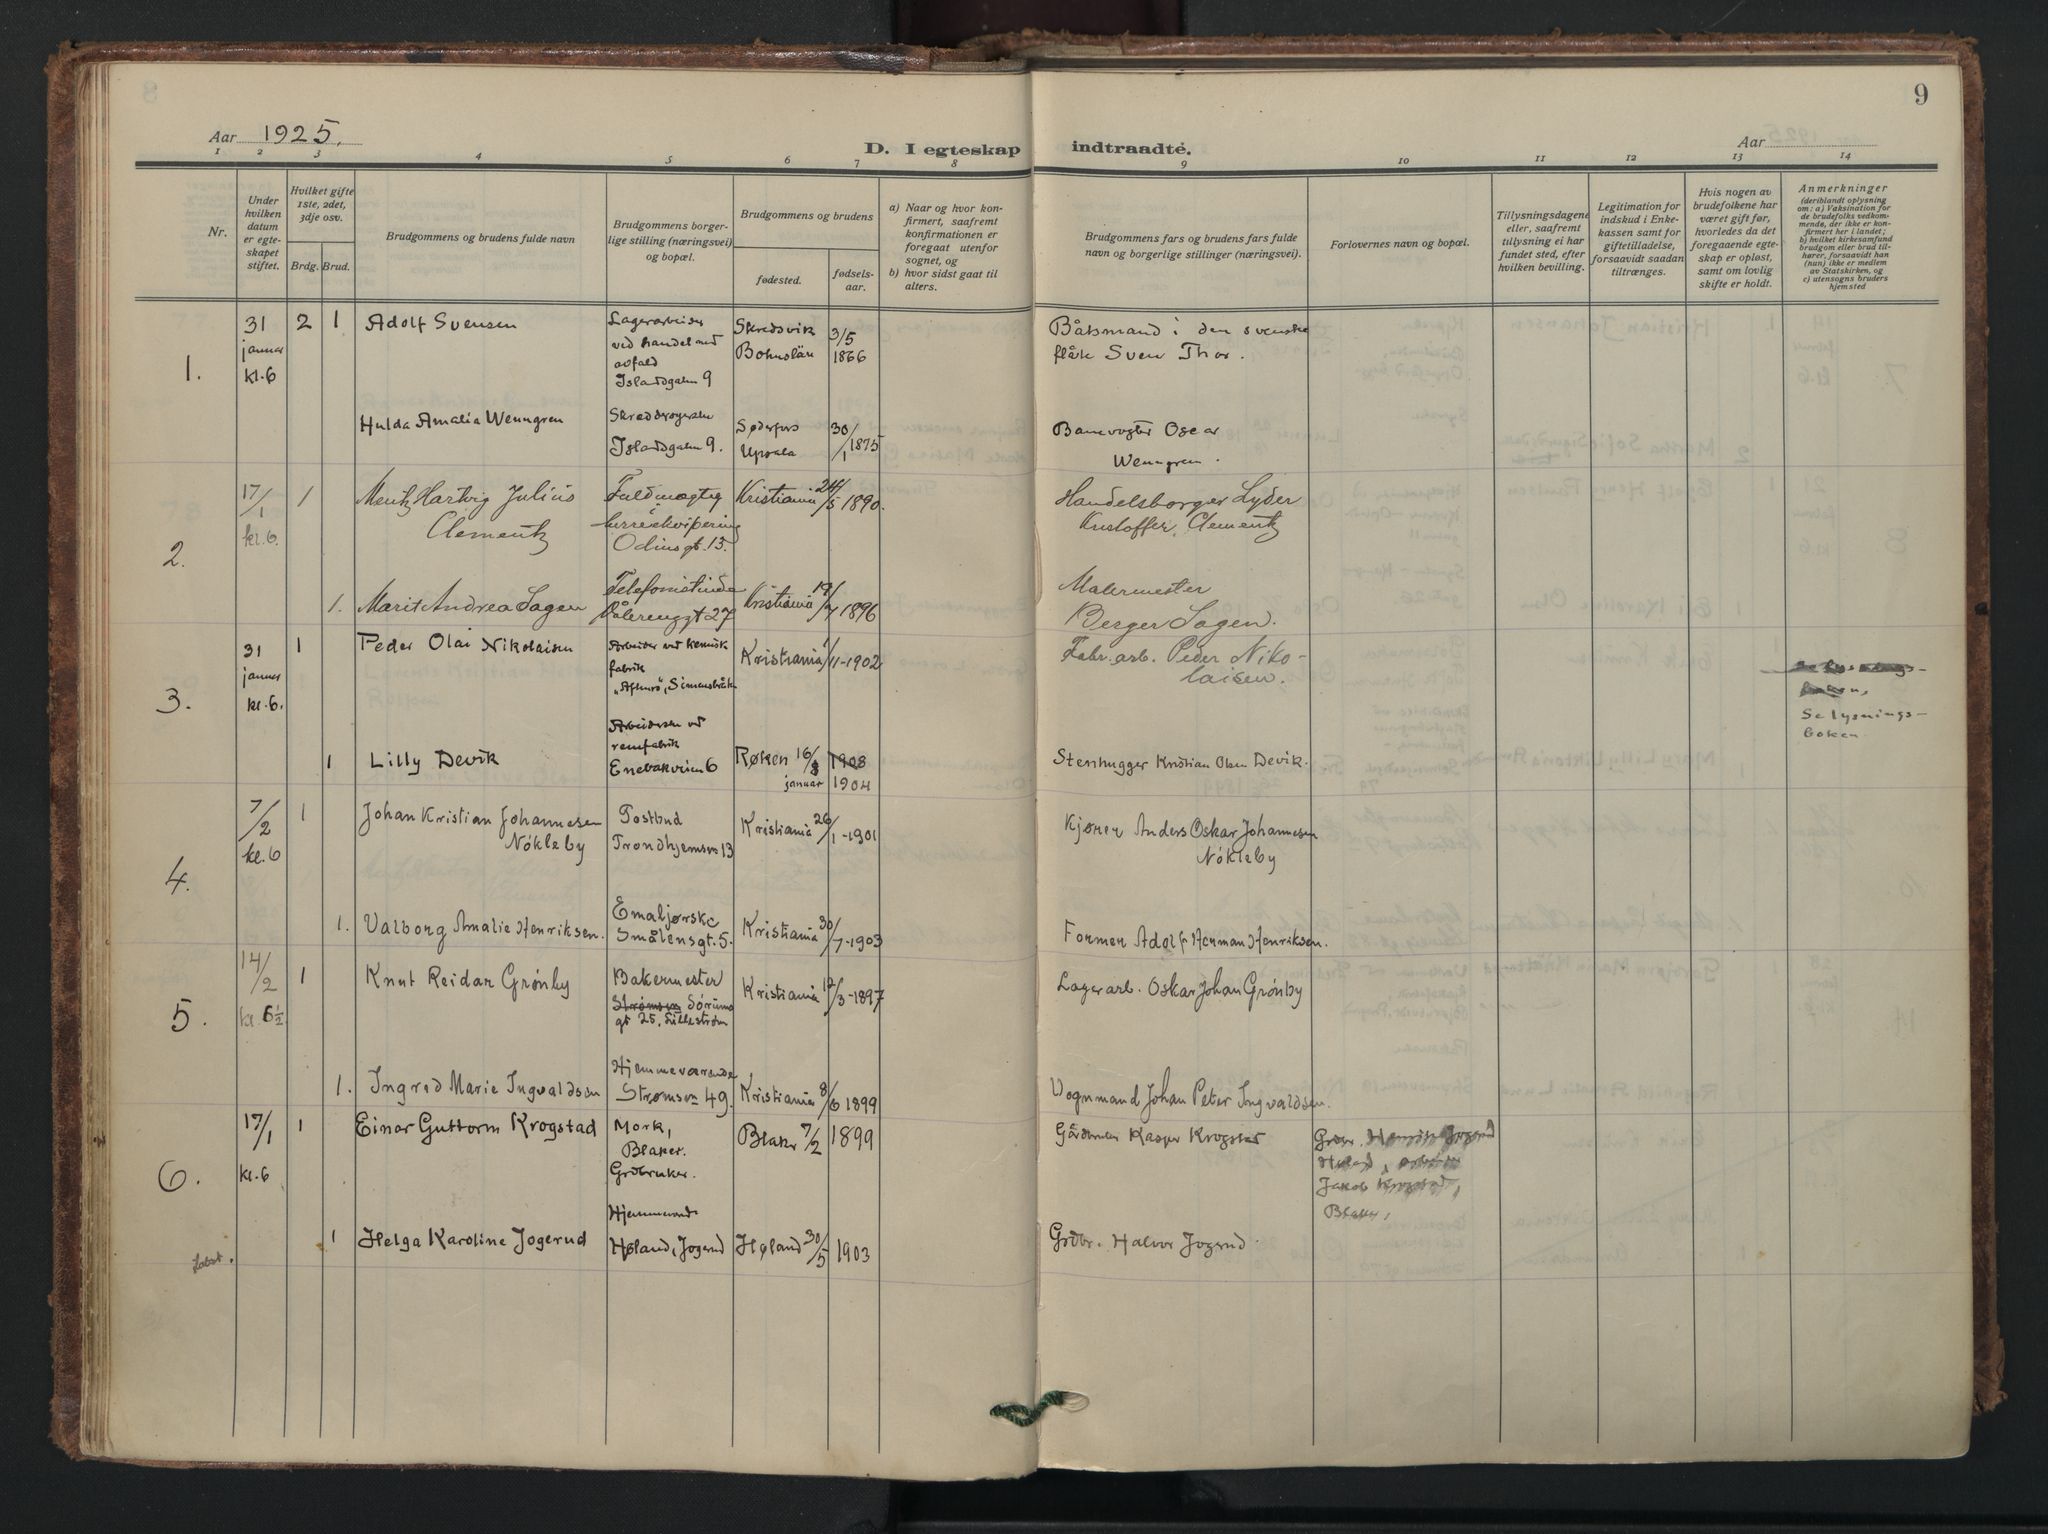 9
Aar 1925.
D. I egteskap indtraadte.
Aar
1 2 3 4 5 6 7 8 9 10 11 12 13 14
Nr.
Under
hvilken
datum
er egte-
skapet
stiftet.
Hvilket gifte
1ste, 2det,
3dje osv.
Brdg. Brud.
Brudgommens og brudens fulde navn
Brudgommens borger-
lige stilling (næringsvei)
og bopæl.
Brudgommens og brudens
fødested.
fødsels-
aar.
a) Naar og hvor kon-
firmert, saafremt
konfirmationen er
foregaat utenfor
sognet, og
b) hvor sidst gaat til
alters.
Brudgommens fars og brudens fars fulde
navn og borgerlige stillinger (næringsvei).
Forlovernes navn og bopæl.
Tillysningsdagene
eller, saafremt
tillysning ei har
fundet sted, efter
hvilken bevilling.
Legitimation for
indskud i Enke-
kassen samt for
giftetilladelse,
forsaavidt saadan
tiltrænges.
Hvis nogen av
brudefolkene har
været gift før,
hvorledes da det
foregaaende egte-
skap er opløst,
samt om lovlig
skifte er holdt.
Anmerkninger
(deriblandt oplysning
om: a) Vaksination for
de brudefolks vedkom-
mende, der ikke er kon-
firmert her i landet;
b) hvilket kirkesamfund
brudgom eller brud til-
hører, forsaavidt han
(hun) ikke er medlem
av Statskirken, og
c) utensogns bruders
hjemsted
1.
31
januar
kl. 6
2 1
Adolf Svensen
Lagerarbeider
ved handel med
avfald
Islandsgaten 9
Skredsvik
Bohuslän
3/5
1866
Båtsmand i den svenske
flåte Sven Thor.
Hulda Amalia Wenngren
Islandsgaten 9.
Søderfors
Upsala
30/1 1875
Banevogter Oscar
Wenngren.
2.
17/1
kl. 6.
1
Mentz Hartvig Julius
Clementz
Fuldmægtig
herreekvipering
Odinsgt. 13.
Kristiania 24/5 1890.
Handelsborger Lyder
Kristoffer Clementz
1.
Marit Andrea Sagen
Telefonistinde
Vålerenggt 27
Kristiania 19/7 1896
Malermester
Berger Sagen.
3.
31
januar
kl. 6.
1
Peder Olai Nikolaisen
Arbeider ved kemisk
fabrik
Kristiania 1/11-1902
Fabr. arb. Peder Niko-
laisen.
Se lysnings-
boken
1
Lilly Devik
Arbeiderske ved
remfabrik
Enebakveien 6
Røken 16/
januar
1903
1904
Stenhugger Kristian Olsen Devik.
4.
7/2
kl. 6
1
Johan Kristian Johannesen
Nökleby
Postbud
Trondhjemsvn 13
Kristiania 26/1-1901
Kjører Anders Oskar Johannesen
Nökleby
1.
Valborg Amalie Henriksen.
Emaljørske
Smålensgt. 5.
Kristiania 30/7-1903
Former Adolf Herman Henriksen.
5.
14/2
kl. 6½
1
Knut Reidar Grønby
Bakermester
Strømsvn Sörums
gt 25. Lillestrøm
Kristiania 12/3-1897
Lagerarb. Oskar Johan Grønby
1.
Ingrid Marie Ingvaldsen
Hjemmeværende
Strømsvn 49.
Kristiania 8/6 1899
Vognmand Johan Peter Ingvaldsen.
6.
17/1
kl. 6
1
Einar Guttorm Krogstad
Mork,
Blaker.
Grdbruker.
Blaker 7/2 1899
Gårdbruker Kasper Krogstad
Jakob Krogstad,
Blaker,
1
Helga Karoline Jogerud
Hjemmeværende
Høland, Jogerud
Høland 30/5 1903
Grdbr. Halvor Jogerud.